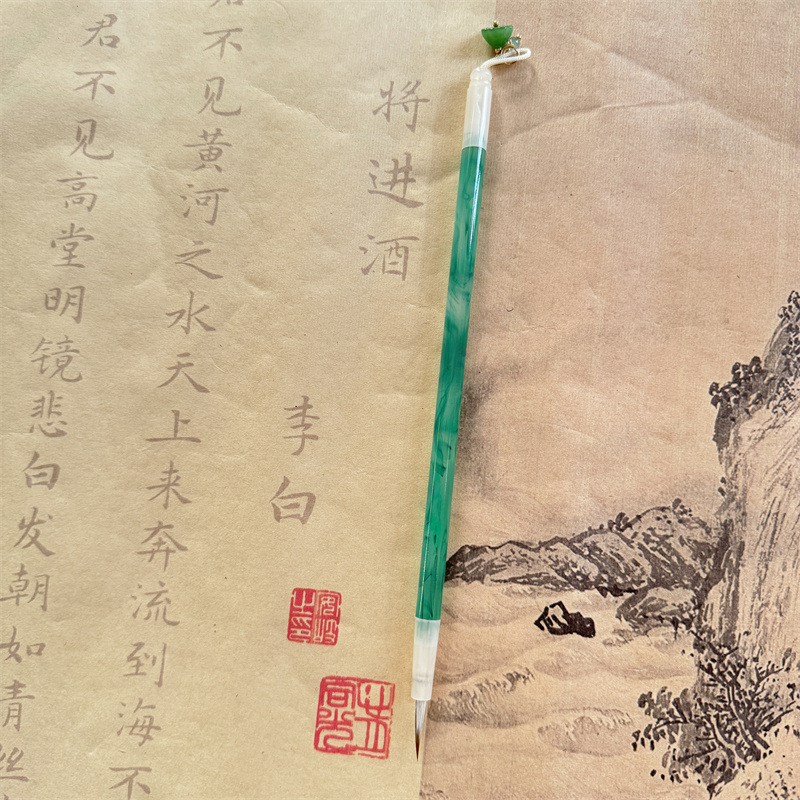 将进酒
李白
君不见黄河之水天上来奔流到海不
君不见高堂明镜悲白发朝如青丝